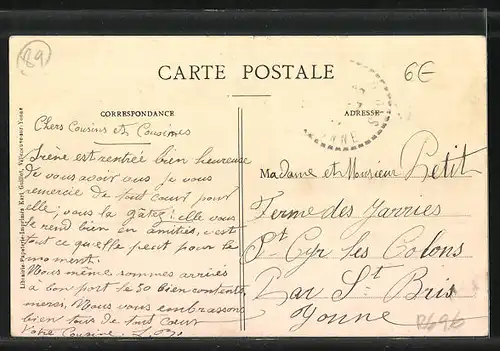 89
CARTE POSTALE
6€
CORRESPONDANCE
ADRESSE
Chers Cousins et Cousines
Irène est rentrée bien heureuse
de vous avoir vus je vous
remercie de tout cœur pour
elle, vous la gâtez! elle vous
le rend bien en amitiés, c'est
tout ce qu'elle peut pour le
moment.
Nous même sommes arrivés
à bon port le 30 bien contents
merci. Nous vous embrassons
bien tous de tout Cœur
Votre Cousine
Madame et Monsieur Petit
Ferme des Jarries
St Cyr les Colons
Par St Bris
Yonne
YONNE
Librairie Papeterie-Imprimerie Karl Guillot, Villeneuve-sur-Yonne